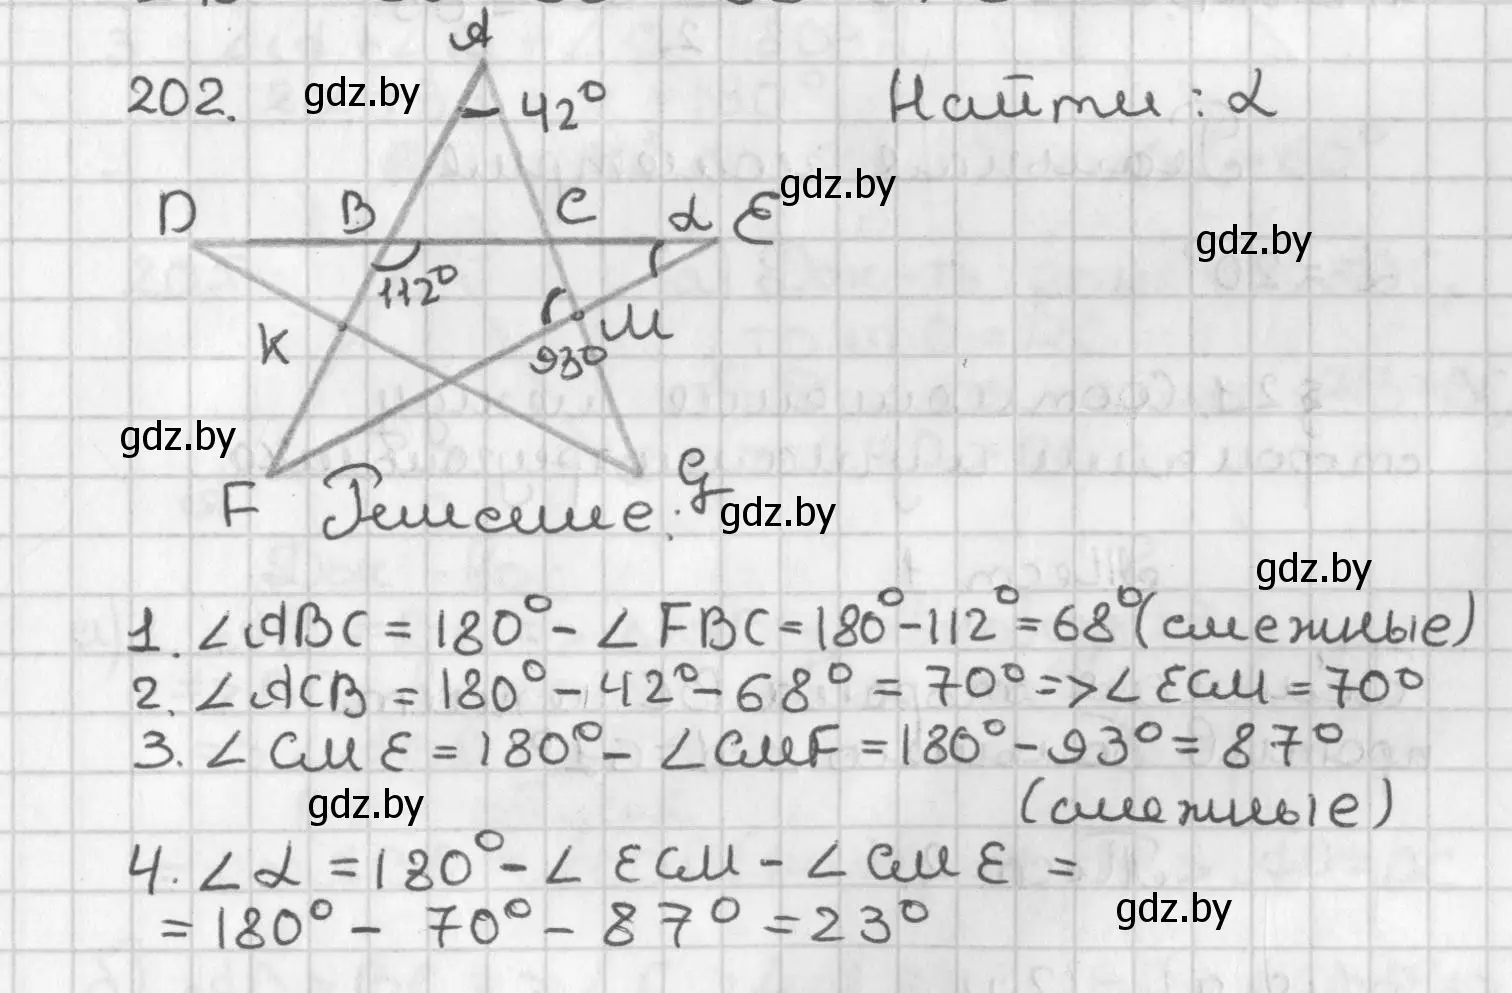 A
202.
gdz.by
42°
Найти: α
D
B
C
α
E
gdz.by
gdz.by
112°
K
M
93°
gdz.by
F
Решение:
G
gdz.by
gdz.by
1. ∠ABC = 180° - ∠FBC = 180° - 112° = 68° (смежные)
2. ∠ACB = 180° - 42° - 68° = 70° => ∠ECM = 70°
3. ∠CME = 180° - ∠CMF = 180° - 93° = 87°
(смежные)
gdz.by
4. ∠α = 180° - ∠ECM - ∠CME =
= 180° - 70° - 87° = 23°
gdz.by